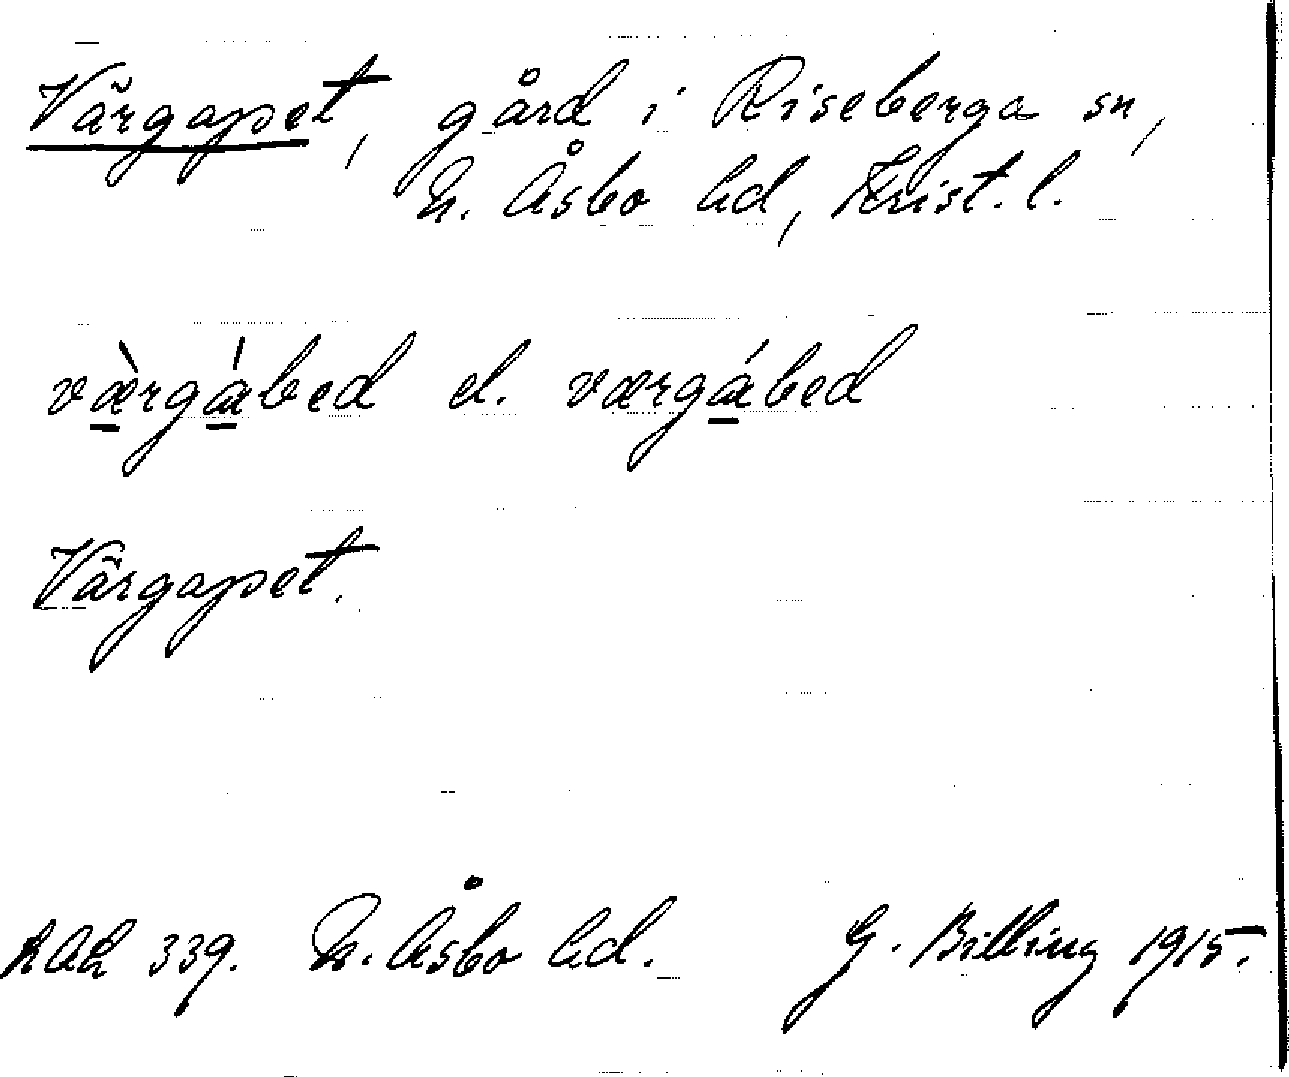 Värgapet, gård i Riseberga sn,
N. Åsbo hd, Krist. l.
væ̀rgábed el. værgábed
Värgapet.
RAÄ 339. N. Åsbo hd. G. Billing 1915.